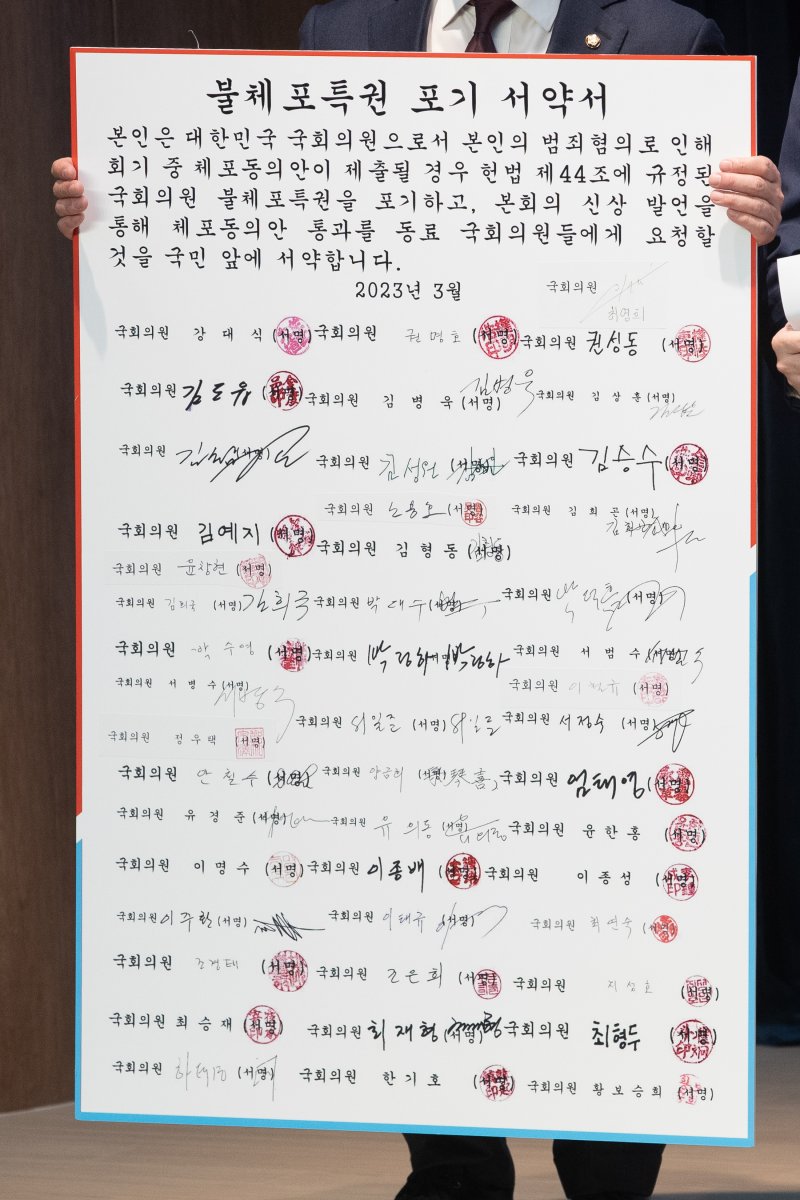 불체포특권 포기 서약서
본인은 대한민국 국회의원으로서 본인의 범죄혐의로 인해
회기 중 체포동의안이 제출될 경우 헌법 제44조에 규정된
국회의원 불체포특권을 포기하고, 본회의 신상 발언을
통해 체포동의안 통과를 동료 국회의원들에게 요청할
것을 국민 앞에 서약합니다.
2023년 3월
국회의원 최영희
국회의원 강대식 (서명) 국회의원 권명호 (서명) 국회의원 권성동 (서명)
국회의원 김도읍 (서명) 국회의원 김병욱 (서명) 김병욱 국회의원 김상훈 (서명)
국회의원 국회의원 김성원 (서명) 국회의원 김승수 (서명)
국회의원 노용호 (서명) 국회의원 김희곤 (서명)
국회의원 김예지 (서명) 국회의원 김형동 (서명)
국회의원 윤창현 (서명)
국회의원 김희국 (서명) 김희국 국회의원 박대수 (서명) 국회의원 박덕흠 (서명)
국회의원 박수영 (서명) 국회의원 박정하 (서명) 박정하 국회의원 서범수 (서명)
국회의원 서병수 (서명) 서병수 국회의원 이철규 (서명)
국회의원 정우택 (서명) 국회의원 서일준 (서명) 서일준 국회의원 서정숙 (서명)
국회의원 안철수 (서명) 국회의원 양금희 (서명) 국회의원 엄태영 (서명)
국회의원 유경준 (서명) 국회의원 유의동 (서명) 유의동 국회의원 윤한홍 (서명)
국회의원 이명수 (서명) 국회의원 이종배 (서명) 국회의원 이종성 (서명)
국회의원 이주환 (서명) 국회의원 이태규 (서명) 국회의원 최연숙 (서명)
국회의원 조경태 (서명) 국회의원 조은희 (서명) 국회의원 지성호 (서명)
국회의원 최승재 (서명) 국회의원 최재형 (서명) 국회의원 최형두 (서명)
국회의원 하태경 (서명) 국회의원 한기호 (서명) 국회의원 황보승희 (서명)